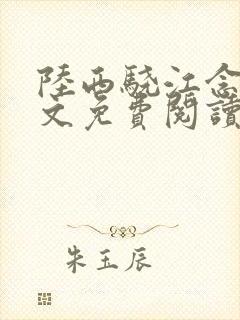 陸西驍江念
文免費閱讀
朱玉辰